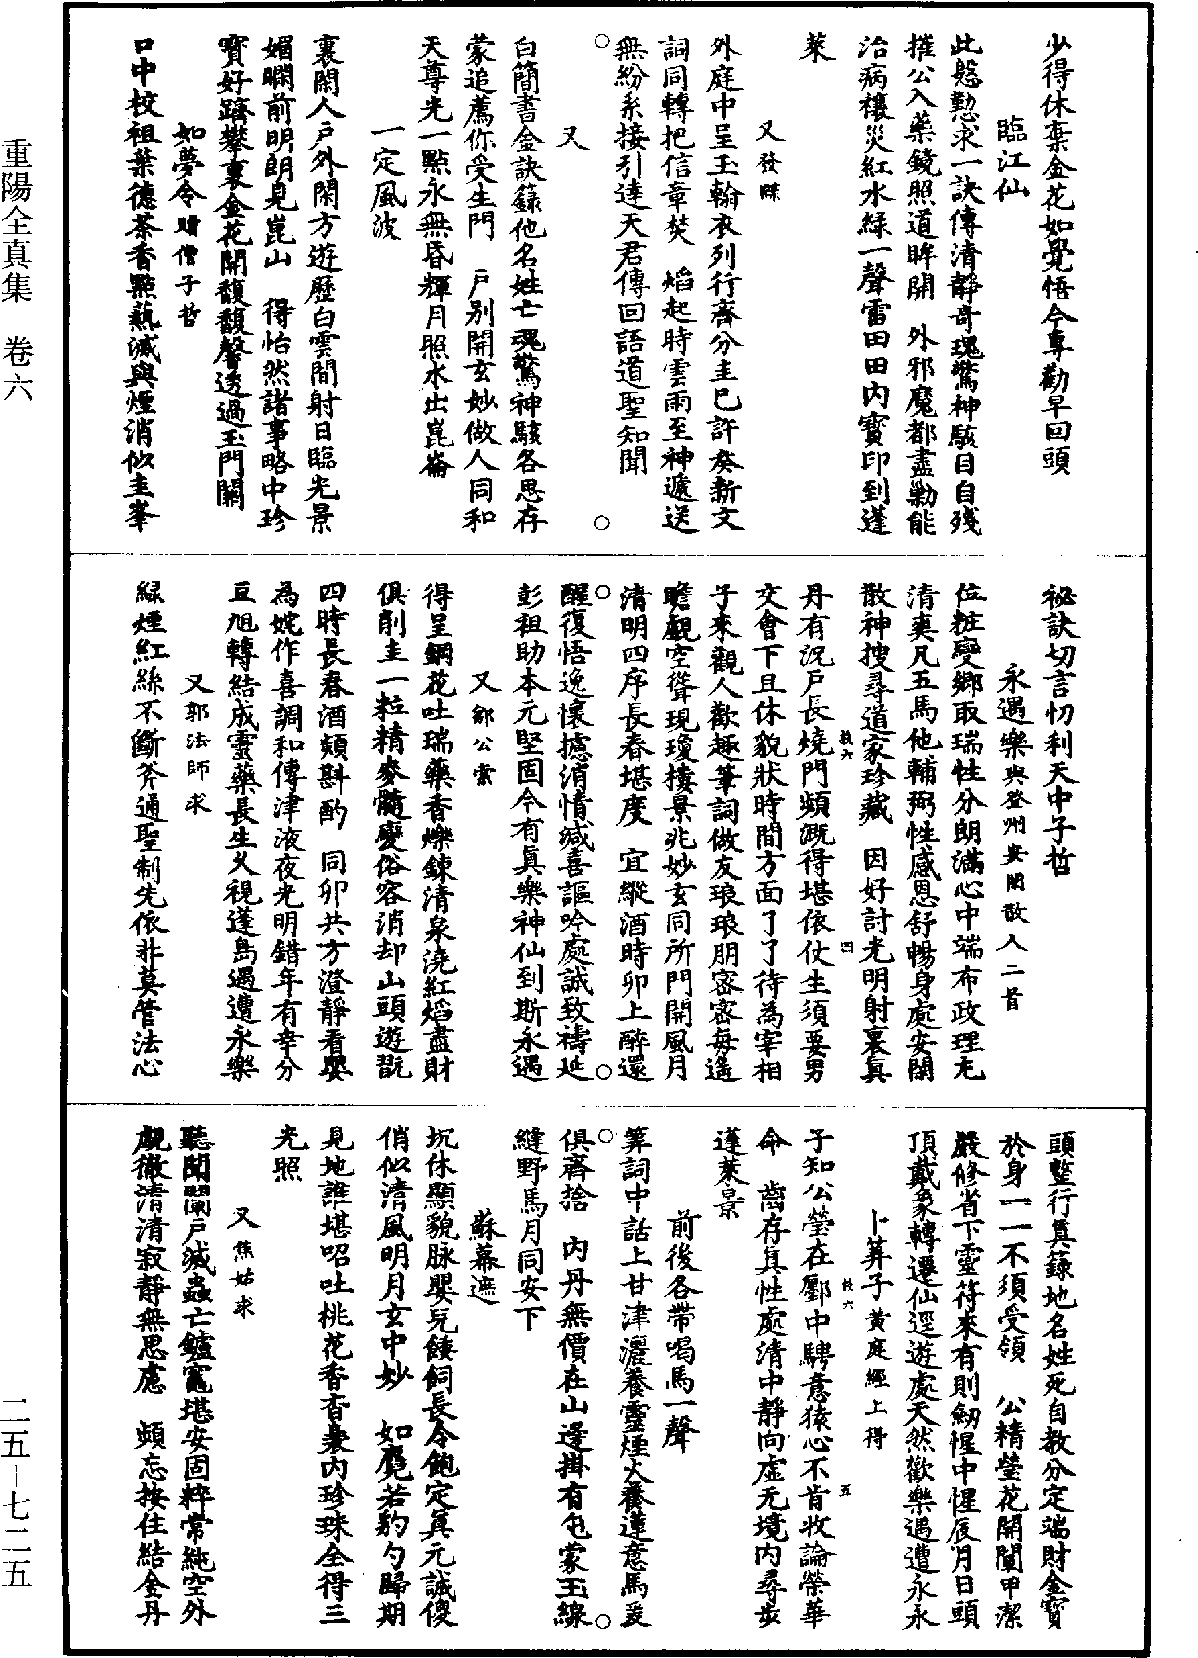 少得休棄金花如覺悟今專勸早回頭
臨江仙
此慇懃求一訣傳清靜哥瑰驚神駭目自殘
摧公入藥鏡照道眸開　外邪魔都盡勦能
治病禳災紅水綠一聲雷田田內寶印到蓬
萊
又發牒
外庭中呈玉翰衣列行齊分圭巳許癸新文
詞同轉把信章焚　焰起時雲雨至神遞送
無紛系接引達天君傳回語道聖知聞
又
白簡書金訣籙他名姓亡魂驚神駭各思存
蒙追薦你受生門　戶別開玄妙做人同和
天尊光一點永無昏輝月照水出崑崙
一定風波
裏閑人戶外閑方遊歷白雲間射日臨光景
媚瞯前明朗見崑山　得怡然諸事略中珍
寶好躋攀裏金花開馥馥馨透過玉門關
如夢令贈僧子哲
口中校祖葉德茶香點爇滅與煙消似圭峯
秘訣切言忉利天中子哲
永遇樂與登州安閑散人二首
位粧變鄉取瑞性分朗滿心中端布政理尢
清爽凡五馬他輔弼性感恩舒暢身處安閑
散神搜尋道家珍藏　因好討光明射裏真
枝六　四
丹有況戶長燒門頻溉得堪依仗生須要男
交會下且休貌狀時間方面了了待為宰相
子來觀人歡趣筆詞做友琅琅朋密密每遙
瞻觀空聳現瓊樓景兆妙玄同所門開風月
清明四序長春堪度　宜縱酒時卯上醉還
醒復悟逸懷攄消情緘喜謳吟處誠致禱延
彭祖助本元堅固今有眞樂神仙到斯永遇
又鄒公索
得呈鋼花吐瑞藥香爍鍊清泉澆紅焰盡財
俱削圭一粒精麥髓變俗容消却山頭遊翫
四時長春酒頻斟酌　同卯共方澄靜看嬰
為姹作喜調和傳津液夜光明錯年有幸分
豆旭轉結成靈藥長生久視蓬島遇遭永樂
又郭法師求
綠煙紅絲不斷斧通聖制先依非莫管法心
頭整行真籙地名姓死自教分定端財金寶
於身一一不須受領　公精瑩花開闡甲潔
嚴修省下靈符來有則紉惺中惺辰月日頭
頂戴象轉遷仙逕遊處天然歡樂遇遭永永
卜筭子黃庭經上得
子知公瑩在酈中騁意猿心不肯收論榮華
枝六　五
命　齒存真性處清中靜向虛无境內尋步
蓬萊景
前後各帶喝馬一聲
筭詞中話上甘津灑養靈煙火養蓮意馬爰
俱齊捨　內丹無價在山邊掛有包蒙玉線
縫野馬月同安下
蘇幕遮
坑休顯貌脉嬰兒餧飼長令飽定真元誠傻
俏似清風明月玄中妙　如麑若豹勺歸期
見地誰堪吅吐桃花香杳裊內珍珠全得三
光照
又焦姑求
聽聞闡戶滅蟲亡鑪竈堪安固粹常純空外
覷徹清清寂靜無思慮　頻忘按住結金丹
重陽全真集　卷六
二五－七二五